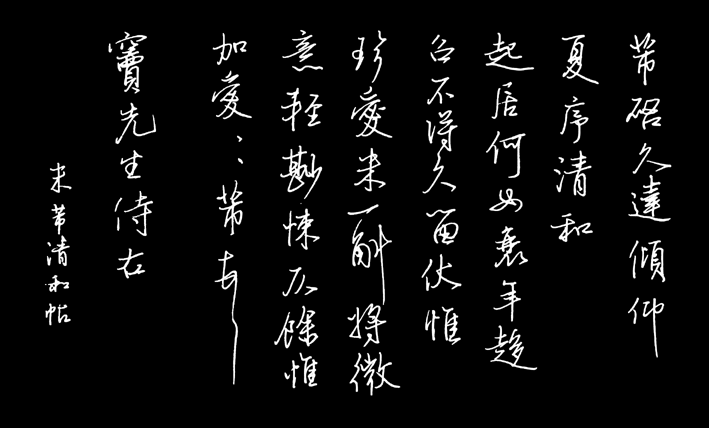 芾启久违倾仰
夏序清和
起居何如衰年趋
召不得久留伏惟
珍爱米一斛将微
意轻鲜悚仄馀惟
加爱、、芾顿
窦先生侍右
米芾清和帖